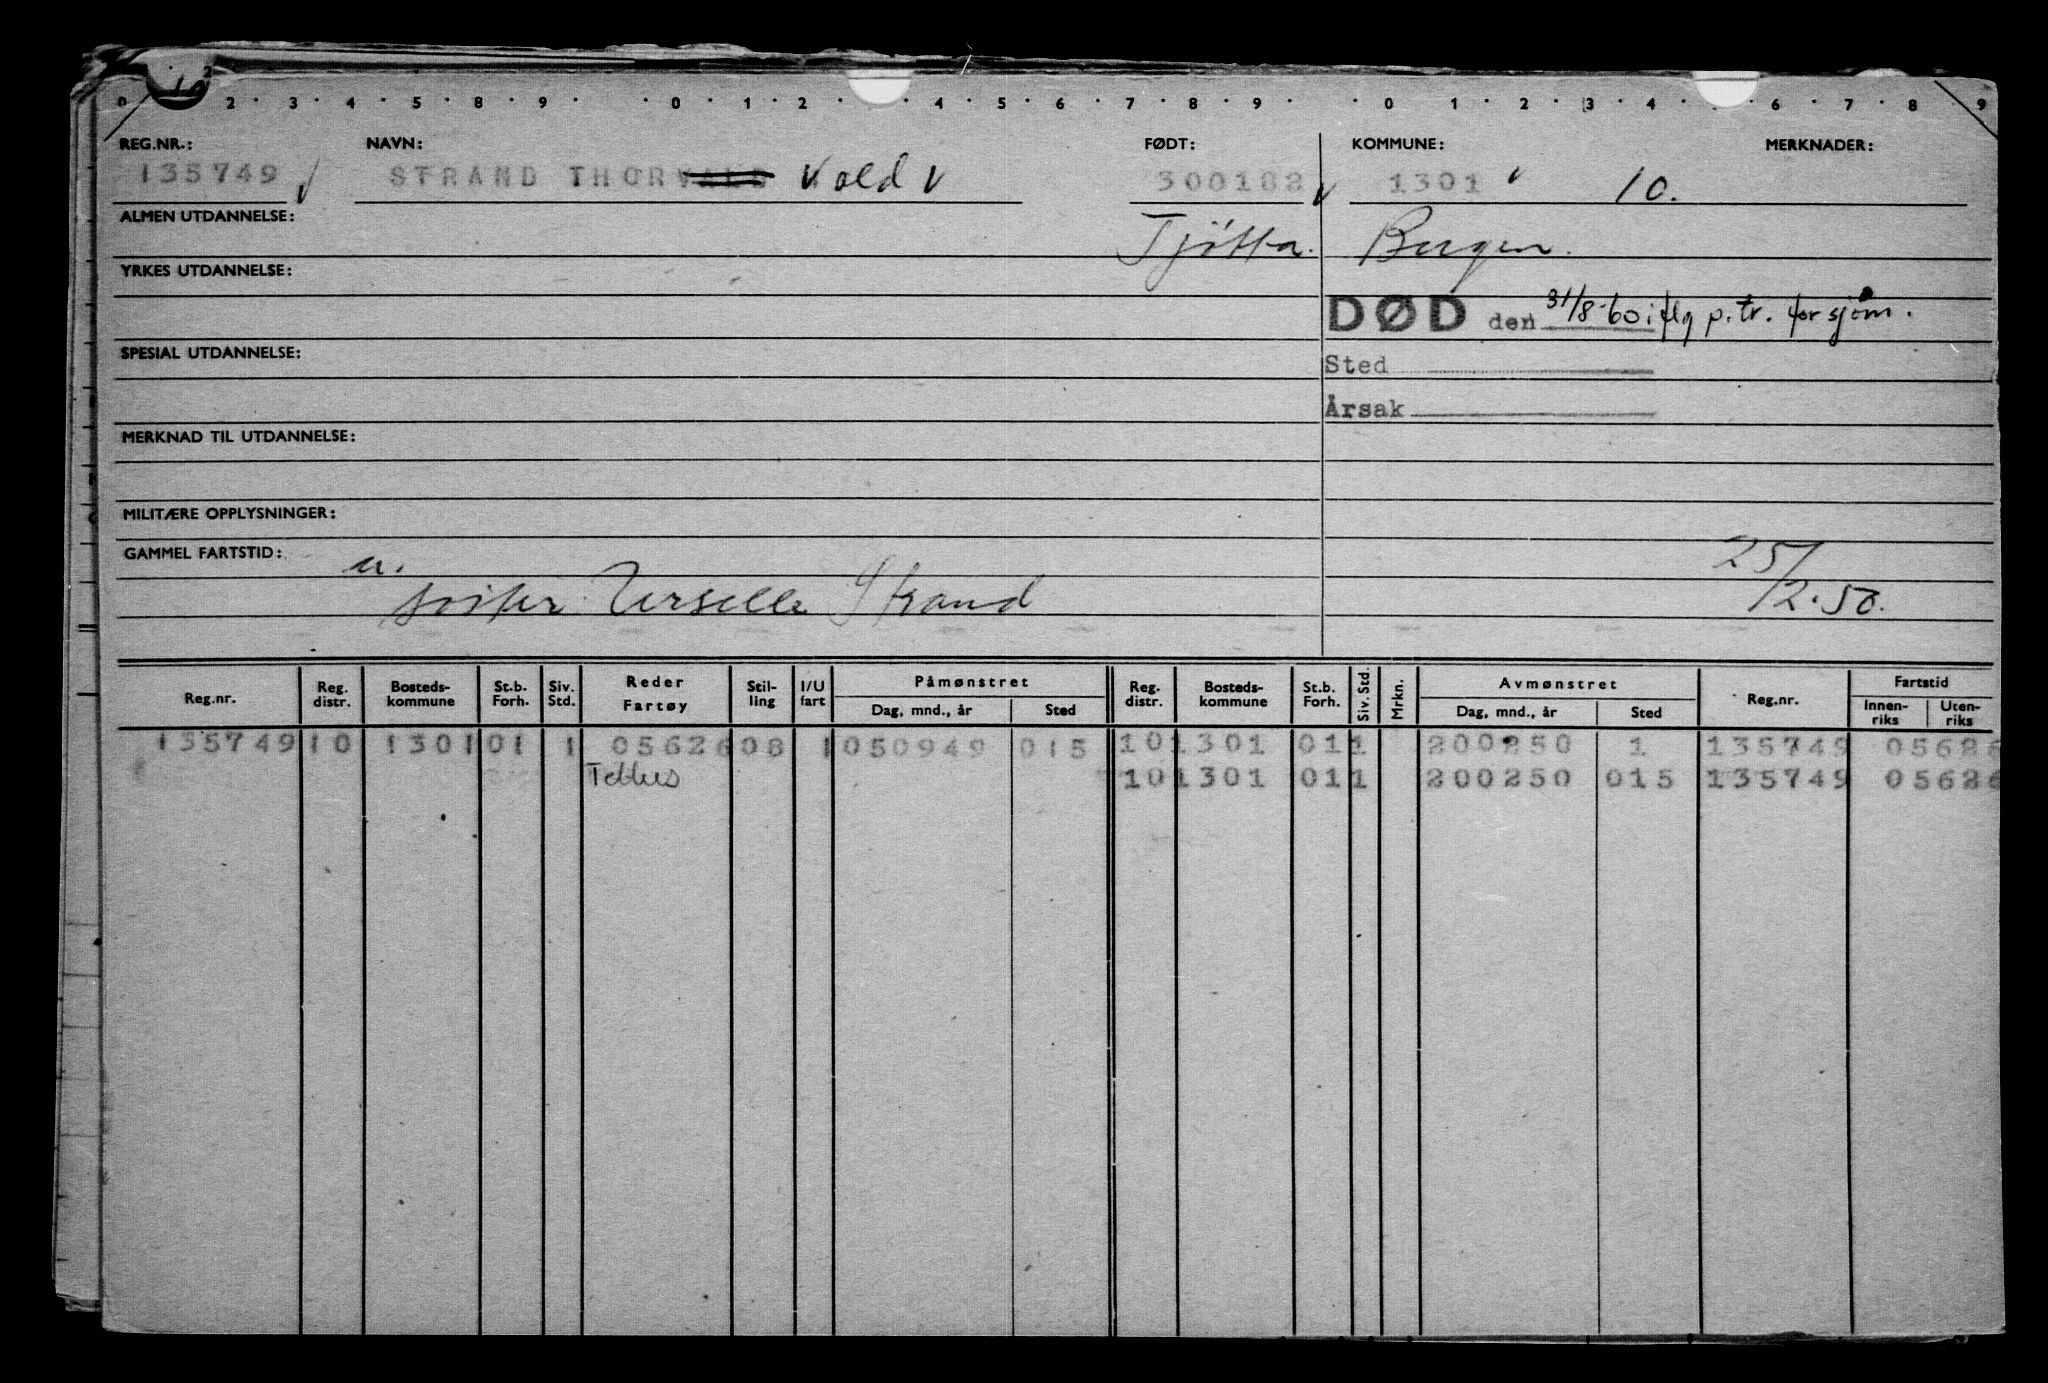 0 2 . 3 . 4 . 5 . 8 . 9 . . 0 . 1 . 2 . 4 . 5 . 6 . 7 . 8 . 9 . . 0 . 1 . 2 . 3 . 4 . 6 . 7 . 8 . 9
REG.NR.: NAVN: FØDT: KOMMUNE: MERKNADER:
135749 STRAND THORVALD vald 300182 1301 10.
ALMEN UTDANNELSE: Tjötta. Bergen.
YRKES UTDANNELSE:
DØD den 31/8-60 iflg p.tr. for sjøm.
SPESIAL UTDANNELSE: Sted
Årsak
MERKNAD TIL UTDANNELSE:
MILITÆRE OPPLYSNINGER:
GAMMEL FARTSTID: u. 25/2.50.
søster Strand
Reg.nr. Reg. distr. Bosteds- kommune St.b. Forh. Siv. Std. Reder Fartøy Stil- ling I/U fart Påmønstret Dag, mnd., år Sted Reg. distr. Bosteds- kommune St.b. Forh. Siv. Std. Mrkn. Avmønstret Dag, mnd., år Sted Reg.nr. Fartstid Innen- riks Uten- riks
135749 10 1301 01 1 05626 08 1 050949 015 10 1301 01 1 200250 1 135749 05626
Tellus 10 1301 01 1 200250 015 135749 05626